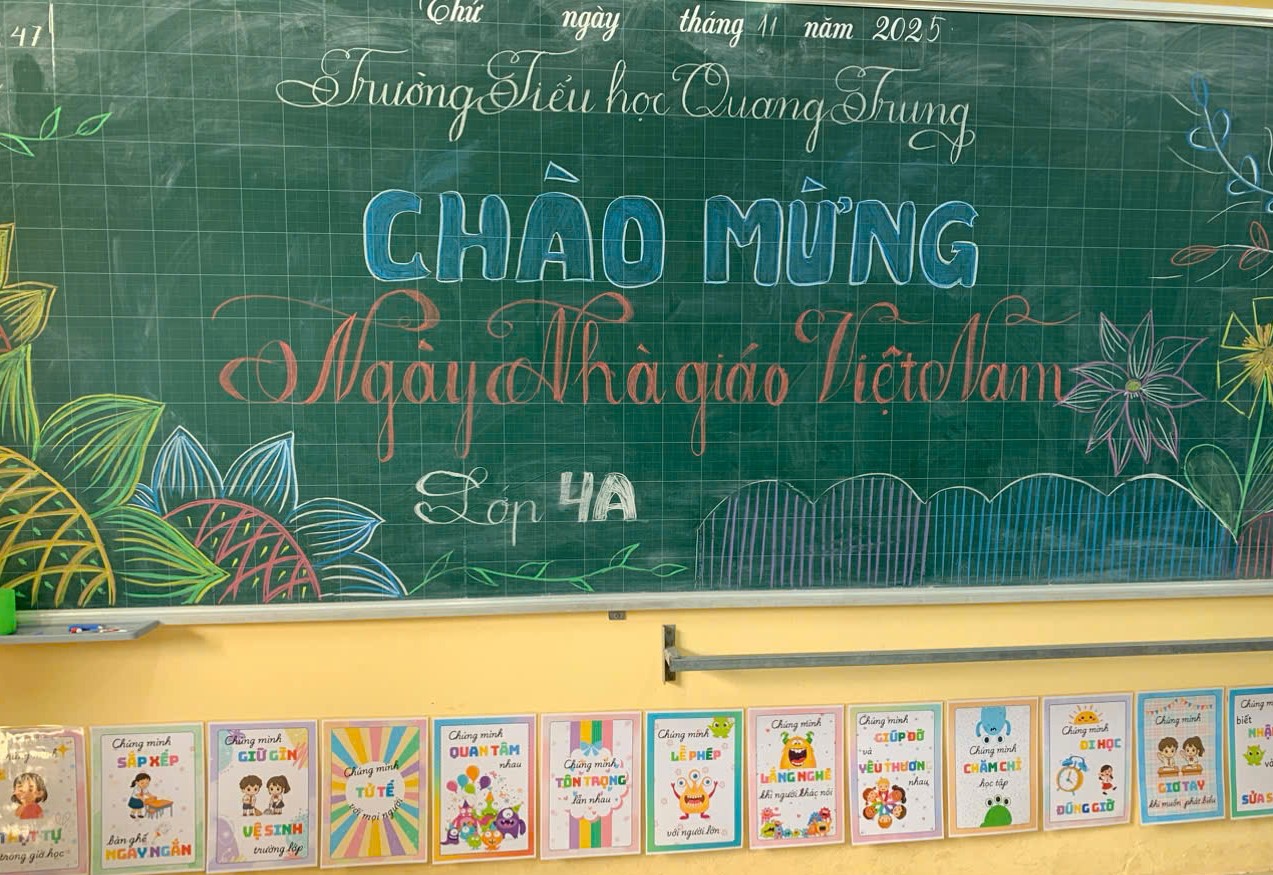 47
Thứ ngày tháng 11 năm 2025
Trường Tiểu học Quang Trung
CHÀO MỪNG
Ngày Nhà giáo Việt Nam
Lớp 4A
TRẬT TỰ
trong giờ học
Chúng mình
SẮP XẾP
bàn ghế
NGAY NGẮN
Chúng mình
GIỮ GÌN
VỆ SINH
trường lớp
Chúng mình
TỬ TẾ
với mọi người
Chúng mình
QUAN TÂM
nhau
Chúng mình
TÔN TRỌNG
lẫn nhau
Chúng mình
LỄ PHÉP
với người lớn
Chúng mình
LẮNG NGHE
khi người khác nói
Chúng mình
GIÚP ĐỠ
và
YÊU THƯƠNG
nhau
Chúng mình
CHĂM CHỈ
học tập
Chúng mình
ĐI HỌC
ĐÚNG GIỜ
Chúng mình
GIƠ TAY
khi muốn phát biểu
Chúng m
biết
NHẬ
và
SỬA S